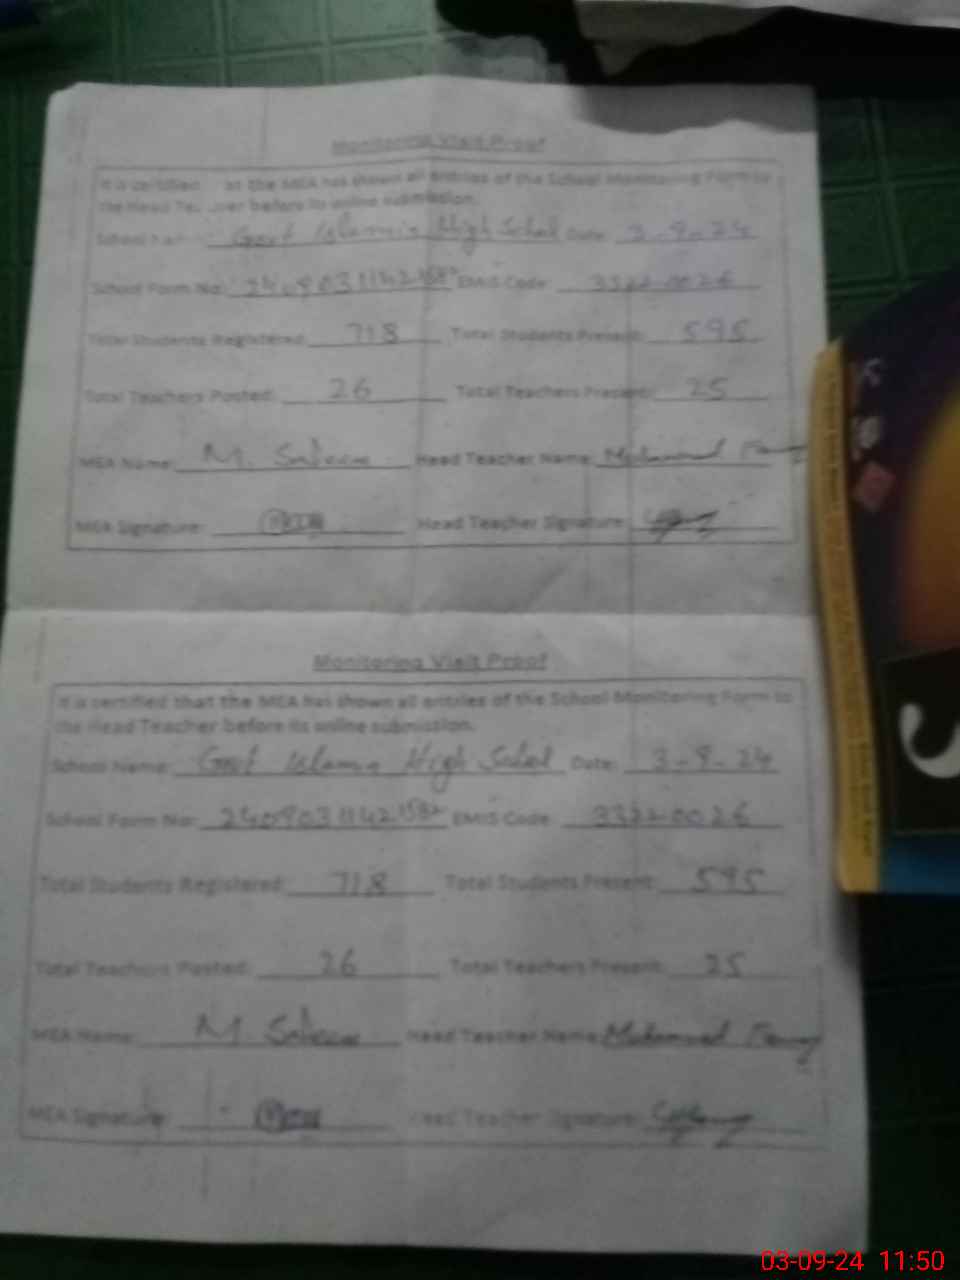 Monitoring Visit Proof
It is certified at the MEA has shown all entries of the School Monitoring Form to
the Head before its online submission.
School Govt Islamia High School Date: 3-9-24
School Form No: EMIS Code: 33220026
Total Students Registered: 718 Total Students Present: 595
Total Teachers Posted: 26 Total Teachers Present: 25
MEA Name: M. Saleem Head Teacher Name: Muhammad
MEA Signature: Head Teacher Signature:
Monitoring Visit Proof
It is certified that the MEA has shown all entries of the School Monitoring Form to
the Head Teacher before its online submission.
School Name: Govt Islamia High School Date: 3-9-24
School Form No: EMIS Code: 33220026
Total Students Registered: 718 Total Students Present: 595
Total Teachers Posted: 26 Total Teachers Present: 25
MEA Name: M. Saleem Head Teacher Name: Muhammad
MEA Signature: Head Teacher Signature:
03-09-24 11:50